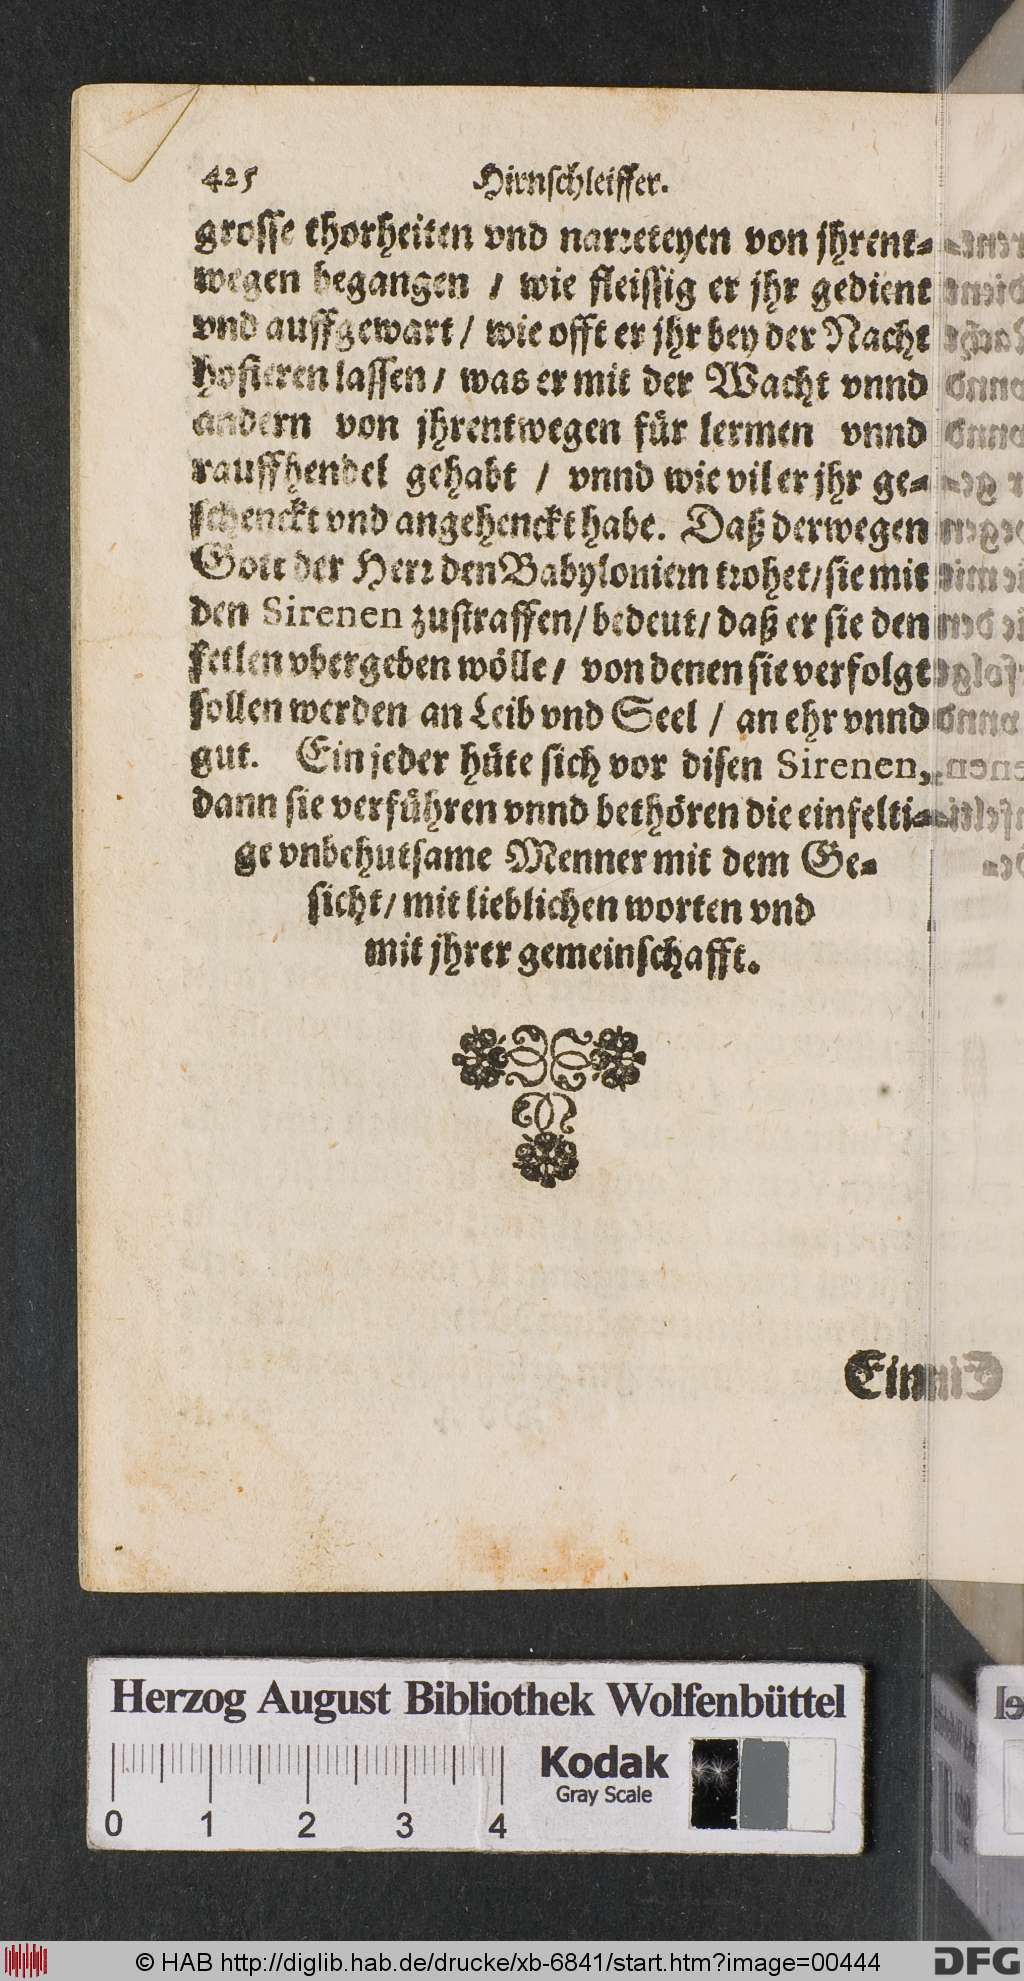 425 Hirnschleiffer.
grosse thorheiten vnd narreteyen von jhrent-
wegen begangen / wie fleissig er jhr gedient
vnd auffgewart / wie offt er jhr bey der Nacht
hofieren lassen / was er mit der Wacht vnnd
andern von jhrentwegen für lermen vnnd
rauffhendel gehabt / vnnd wie vil er jhr ge-
schenckt vnd angehenckt habe. Daß derwegen
Gott der Herr den Babyloniern trohet / sie mit
den Sirenen zustraffen / bedeut / daß er sie den
fetlen vbergeben wölle / von denen sie verfolgt
sollen werden an Leib vnd Seel / an ehr vnnd
gut. Ein jeder hüte sich vor disen Sirenen,
dann sie verführen vnnd bethören die einfelti-
ge vnbehutsame Menner mit dem Ge-
sicht / mit lieblichen worten vnd
mit jhrer gemeinschafft.
Ein
Herzog August Bibliothek Wolfenbüttel
Kodak
Gray Scale
0 1 2 3 4
© HAB http://diglib.hab.de/drucke/xb-6841/start.htm?image=00444
DFG